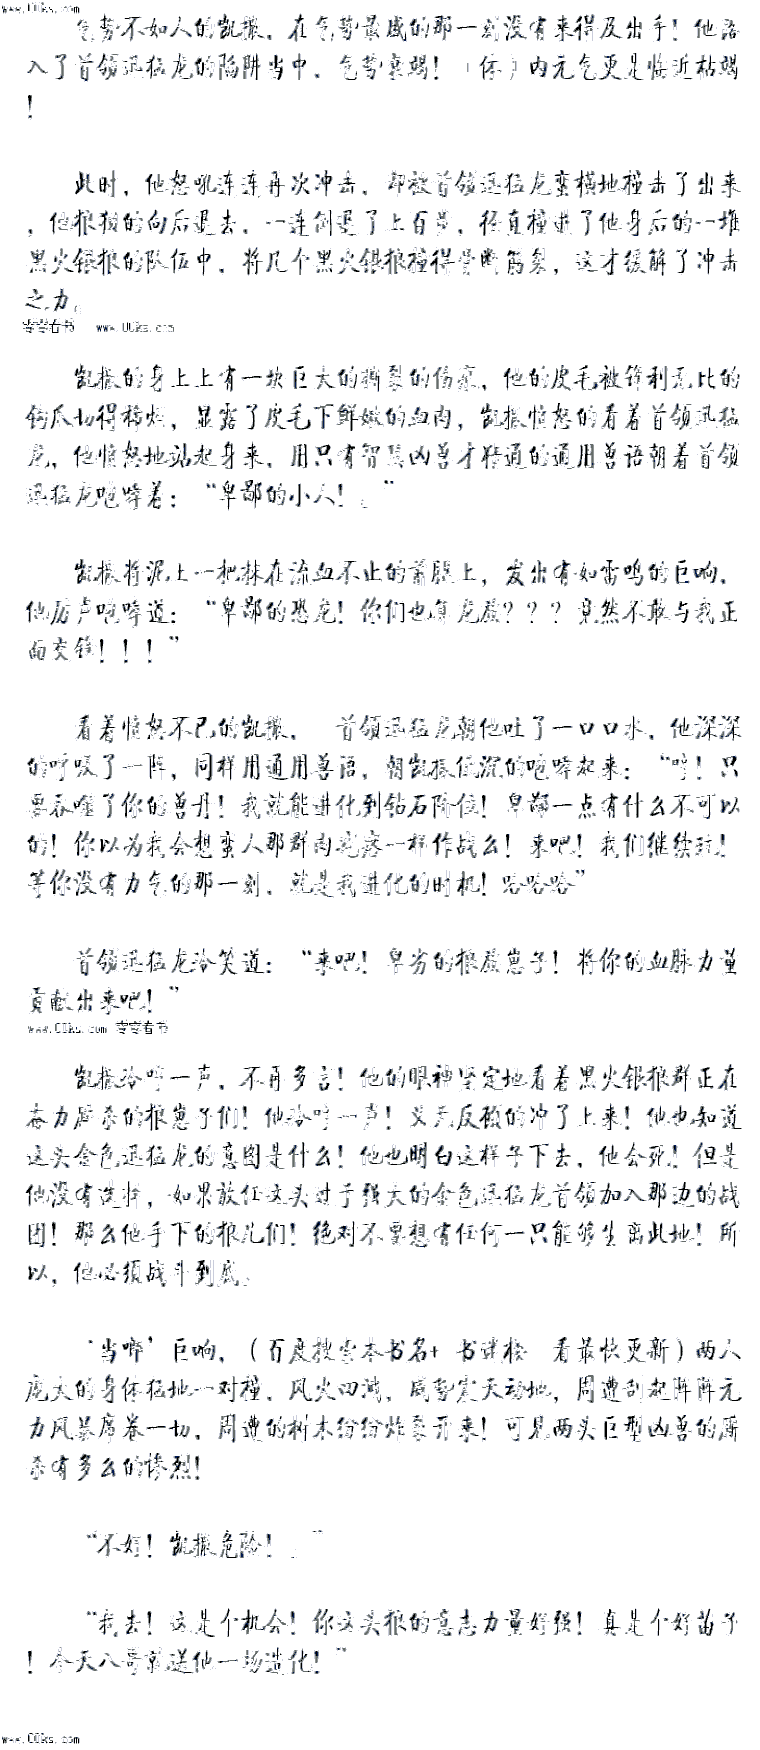 www.00ks.com
气势不如人的凯撒，在气势最盛的那一刻没有来得及出手！他落
入了首领迅猛龙的陷阱当中，气势衰竭！（体）内元气更是临近枯竭
！
此时，他怒吼连连再次冲击，却被首领迅猛龙蛮横地撞击了出来
，他狼狈的向后退去，一连倒退了上百步，径直撞进了他身后的一堆
黑火银狼的队伍中，将几个黑火银狼撞得骨断筋裂，这才缓解了冲击
之力。
零零看书 www.00ks.com
凯撒的身上上有一块巨大的撕裂的伤痕，他的皮毛被锋利无比的
钩爪切得稀烂，显露了皮毛下鲜嫩的血肉，凯撒愤怒的看着首领迅猛
龙，他愤怒地站起身来，用只有智慧凶兽才精通的通用兽语朝着首领
迅猛龙咆哮着：“卑鄙的小人！，”
凯撒将泥土一把抹在流血不止的前腿上，发出有如雷鸣的巨响，
他厉声咆哮道：“卑鄙的恐龙！你们也算龙族？？？竟然不敢与我正
面交锋！！！”
看着愤怒不已的凯撒， 首领迅猛龙朝他吐了一口口水，他深深
的呼吸了一阵，同样用通用兽语，朝凯撒低沉的咆哮起来：“哼！只
要吞噬了你的兽丹！我就能进化到钻石阶位！卑鄙一点有什么不可以
的！你以为我会想蛮人那群肉疙瘩一样作战么！来吧！我们继续玩！
等你没有力气的那一刻，就是我进化的时机！咯咯咯”
首领迅猛龙冷笑道：“来吧！卑劣的狼族崽子！将你的血脉力量
贡献出来吧！”
www.00ks.com 零零看书
凯撒冷哼一声，不再多言！他的眼神坚定地看着黑火银狼群正在
奋力厮杀的狼崽子们！他冷哼一声！义无反顾的冲了上来！他也知道
这头金色迅猛龙的意图是什么！他也明白这样子下去，他会死！但是
他没有选择，如果放任这头过于强大的金色迅猛龙首领加入那边的战
团！那么他手下的狼儿们！绝对不要想有任何一只能够生离此地！所
以，他必须战斗到底。
‘当啷’巨响，（百度搜索本书名+ 书迷楼 看最快更新）两人
庞大的身体猛地一对撞，风火四溅，威势震天动地，周遭刮起阵阵元
力风暴席卷一切，周遭的树木纷纷炸裂开来！可见两头巨型凶兽的厮
杀有多么的惨烈！
“不好！凯撒危险！，”
“我去！这是个机会！你这头狼的意志力量好强！真是个好苗子
！今天八哥就送他一场造化！”
www.00ks.com